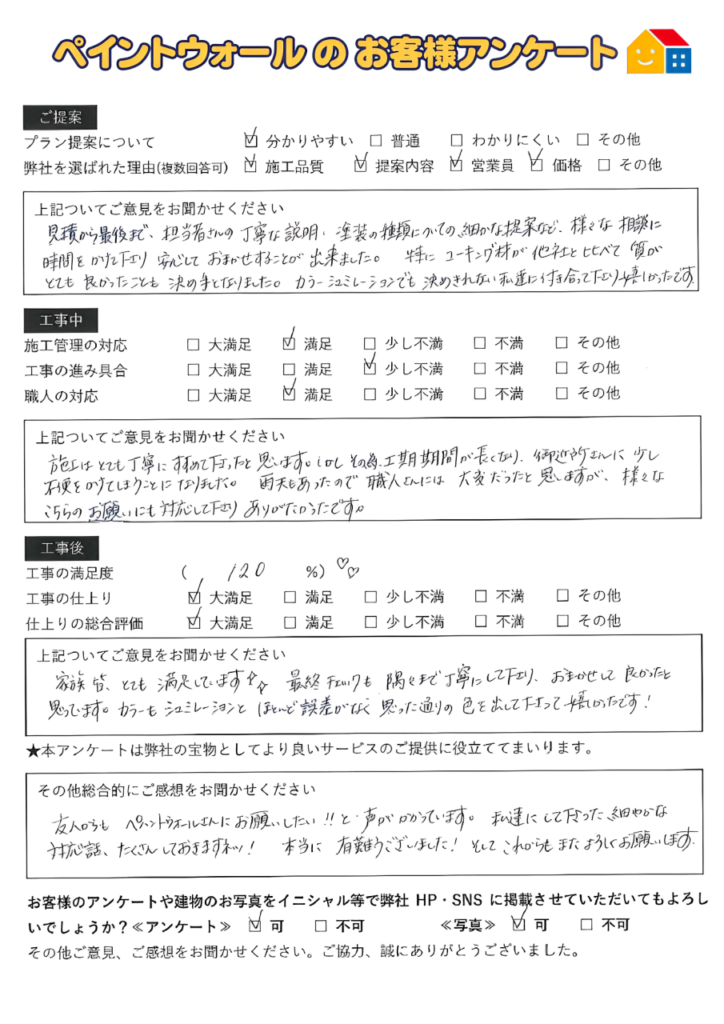 ペイントウォール の お客様アンケート
ご提案
プラン提案について ☑ 分かりやすい ☐ 普通 ☐ わかりにくい ☐ その他
弊社を選ばれた理由(複数回答可) ☑ 施工品質 ☑ 提案内容 ☑ 営業員 ☑ 価格 ☐ その他
上記ついてご意見をお聞かせください
見積から最後まで、担当者さんの丁寧な説明、塗装の種類についての細かな提案など、様々な相談に
時間をかけて下さり 安心して おまかせすることが 出来ました。 特に コーキング材が 他社と比べて 質が
とても 良かったことも 決め手となりました。 カラーシュミレーションでも 決めきれない私達に付き合って下さり嬉しかったです
工事中
施工管理の対応 ☐ 大満足 ☑ 満足 ☐ 少し不満 ☐ 不満 ☐ その他
工事の進み具合 ☐ 大満足 ☐ 満足 ☑ 少し不満 ☐ 不満 ☐ その他
職人の対応 ☐ 大満足 ☑ 満足 ☐ 少し不満 ☐ 不満 ☐ その他
上記ついてご意見をお聞かせください
施工はとても丁寧に すすめて下さったと思います。しかし その為、工期期間が長くなり、御近所さんに 少し
不便をかけてしまうことに なりました。 雨天もあったので 職人さんには 大変だったと 思いますが、 様々な
こちらの お願いにも 対応して下さり ありがたかったです。
工事後
工事の満足度 ( 120 %) ♡♡
工事の仕上り ☑ 大満足 ☐ 満足 ☐ 少し不満 ☐ 不満 ☐ その他
仕上りの総合評価 ☑ 大満足 ☐ 満足 ☐ 少し不満 ☐ 不満 ☐ その他
上記ついてご意見をお聞かせください
家族 皆、とても 満足しています☆☆ 最終チェックも 隅々まで丁寧にして下さり、おまかせして 良かったと
思っています。カラーも シュミレーションと ほとんど 誤差がなく 思った通りの 色を出して下さって 嬉しかったです!
★本アンケートは弊社の宝物としてより良いサービスのご提供に役立ててまいります。
その他総合的にご感想をお聞かせください
友人からも ペイントウォールさんに お願いしたい!! と 声が かかっています。 私達に して下さった 細やかな
対応話、たくさんしておきますネッ! 本当に 有難うございました! そして これからも またよろしくお願いします
お客様のアンケートや建物のお写真をイニシャル等で弊社 HP・SNS に掲載させていただいてもよろし
いでしょうか?≪アンケート≫ ☑ 可 ☐ 不可 ≪写真≫ ☑ 可 ☐ 不可
その他ご意見、ご感想をお聞かせください。ご協力、誠にありがとうございました。